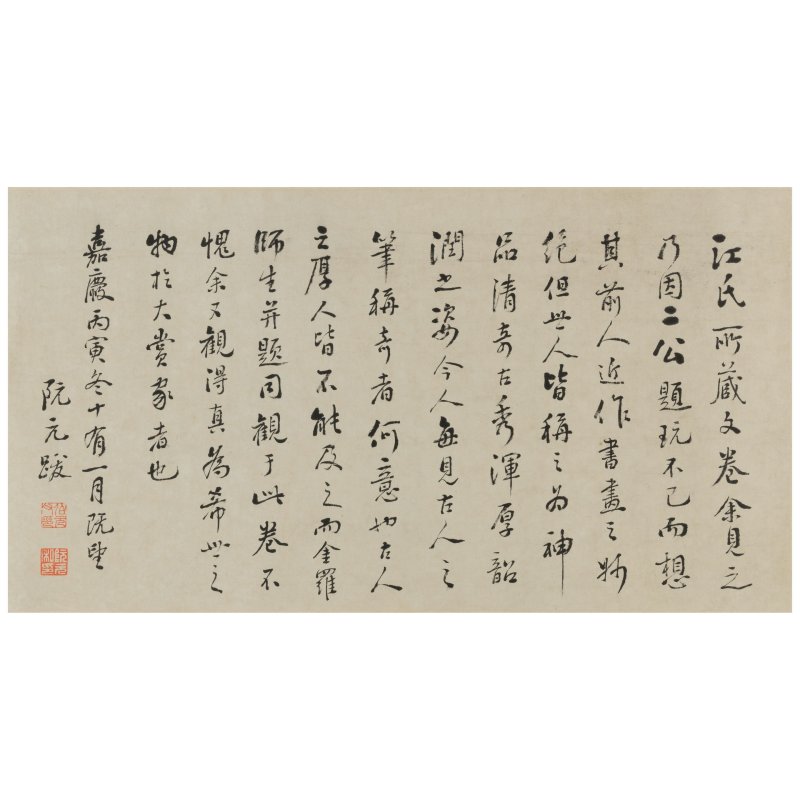 江氏所藏文卷余見之
乃因二公題玩不已而想
其前人近作書畫之妙
絕但世人皆稱之為神
品清奇古秀渾厚韶
潤之姿今人每見古人之
筆稱奇者何意也古人
之厚人皆不能及之而金羅
師生并題同觀于此卷不
愧余又觀得真為希世之
物於大賞家者也
嘉慶丙寅冬十有一月既望
阮元跋